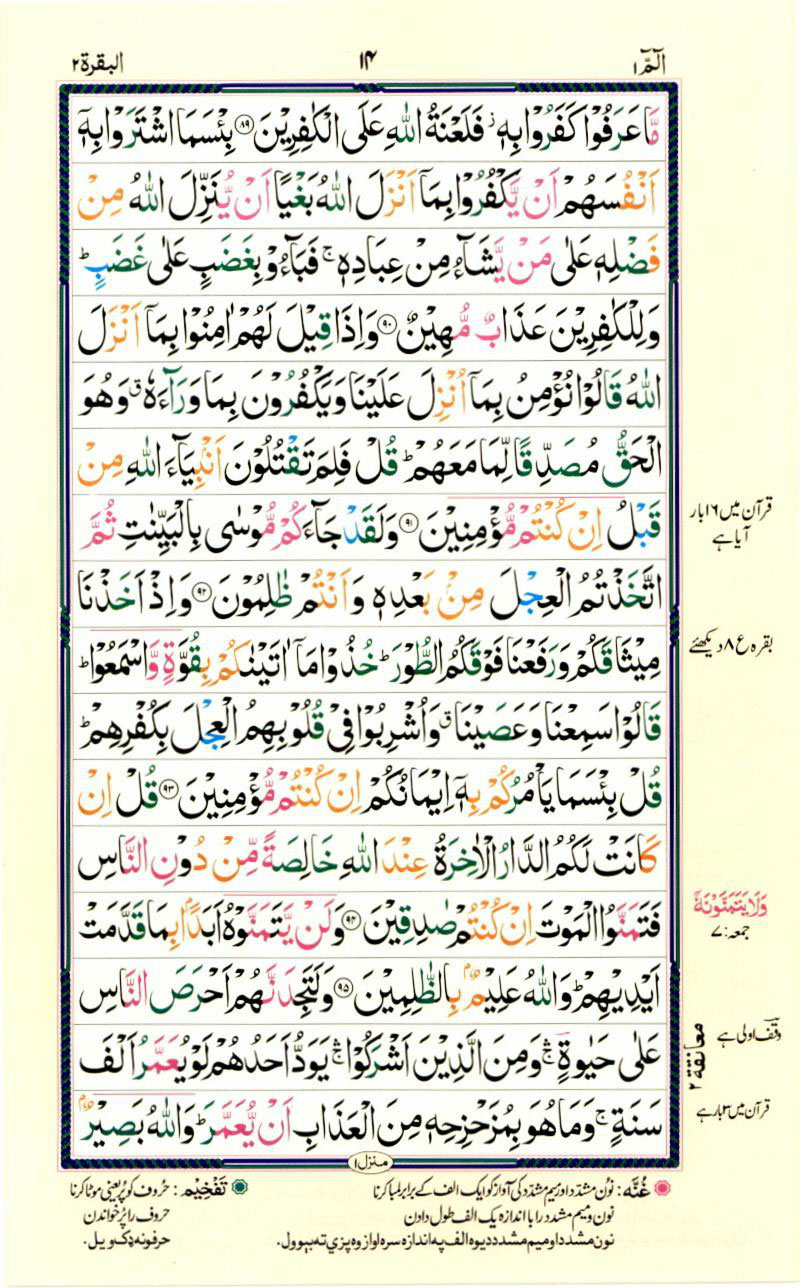 الٓمّٓ ١
١٤
البقرة ٢
مَّا عَرَفُوْا كَفَرُوْا بِهٖ ز فَلَعْنَةُ اللّٰهِ عَلَى الْكٰفِرِيْنَ ﴿۸۹﴾ بِئْسَمَا اشْتَرَوْا بِهٖۤ
اَنْفُسَهُمْ اَنْ يَّكْفُرُوْا بِمَاۤ اَنْزَلَ اللّٰهُ بَغْيًا اَنْ يُّنَزِّلَ اللّٰهُ مِنْ
فَضْلِهٖ عَلٰى مَنْ يَّشَآءُ مِنْ عِبَادِهٖ ۚ فَبَآءُوْ بِغَضَبٍ عَلٰى غَضَبٍ ؕ
وَلِلْكٰفِرِيْنَ عَذَابٌ مُّهِيْنٌ ﴿۹۰﴾ وَاِذَا قِيْلَ لَهُمْ اٰمِنُوْا بِمَاۤ اَنْزَلَ
اللّٰهُ قَالُوْا نُؤْمِنُ بِمَاۤ اُنْزِلَ عَلَيْنَا وَيَكْفُرُوْنَ بِمَا وَرَآءَهٗ ق وَهُوَ
الْحَقُّ مُصَدِّقًا لِّمَا مَعَهُمْ ؕ قُلْ فَلِمَ تَقْتُلُوْنَ اَنْۢبِيَآءَ اللّٰهِ مِنْ
قَبْلُ اِنْ كُنْتُمْ مُّؤْمِنِيْنَ ﴿۹۱﴾ وَلَقَدْ جَآءَكُمْ مُّوْسٰى بِالْبَيِّنٰتِ ثُمَّ
قرآن میں ۱۶ بار
آیا ہے
اتَّخَذْتُمُ الْعِجْلَ مِنْۢ بَعْدِهٖ وَاَنْتُمْ ظٰلِمُوْنَ ﴿۹۲﴾ وَاِذْ اَخَذْنَا
مِيْثَاقَكُمْ وَرَفَعْنَا فَوْقَكُمُ الطُّوْرَ ؕ خُذُوْا مَاۤ اٰتَيْنٰكُمْ بِقُوَّةٍ وَّاسْمَعُوْا ؕ
بقرہ ع ۸ دیکھئے
قَالُوْا سَمِعْنَا وَعَصَيْنَا ق وَاُشْرِبُوْا فِيْ قُلُوْبِهِمُ الْعِجْلَ بِكُفْرِهِمْ ؕ
قُلْ بِئْسَمَا يَاْمُرُكُمْ بِهٖۤ اِيْمَانُكُمْ اِنْ كُنْتُمْ مُّؤْمِنِيْنَ ﴿۹۳﴾ قُلْ اِنْ
كَانَتْ لَكُمُ الدَّارُ الْاٰخِرَةُ عِنْدَ اللّٰهِ خَالِصَةً مِّنْ دُوْنِ النَّاسِ
فَتَمَنَّوُا الْمَوْتَ اِنْ كُنْتُمْ صٰدِقِيْنَ ﴿۹۴﴾ وَلَنْ يَّتَمَنَّوْهُ اَبَدًۢا بِمَا قَدَّمَتْ
وَلَا يَتَمَنَّوْنَهٗۤ
جمعہ: ۷
اَيْدِيْهِمْ ؕ وَاللّٰهُ عَلِيْمٌۢ بِالظّٰلِمِيْنَ ﴿۹۵﴾ وَلَتَجِدَنَّهُمْ اَحْرَصَ النَّاسِ
عَلٰى حَيٰوةٍ ۛۚ وَمِنَ الَّذِيْنَ اَشْرَكُوْا ۛۚ يَوَدُّ اَحَدُهُمْ لَوْ يُعَمَّرُ اَلْفَ
معانقة ۲
وقف اولی ہے
سَنَةٍ ۚ وَمَا هُوَ بِمُزَحْزِحِهٖ مِنَ الْعَذَابِ اَنْ يُّعَمَّرَ ؕ وَاللّٰهُ بَصِيْرٌۢ
قرآن میں ۳ بار ہے
منزل ۱
غُنّہ : نون مشدد اور میم مشدد کی آواز کو ایک الف کے برابر لمبا کرنا
نون و میم مشدد را با اندازہ یک الف طول دادن
نون مشدد او میم مشدد دیوہ الف په اندازه سره اواز وه پزې ته بیوول.
تفخیم : حروف کو پُر یعنی موٹا کرنا
حروف را پُر خواندن
حرفونه ډک ویل.